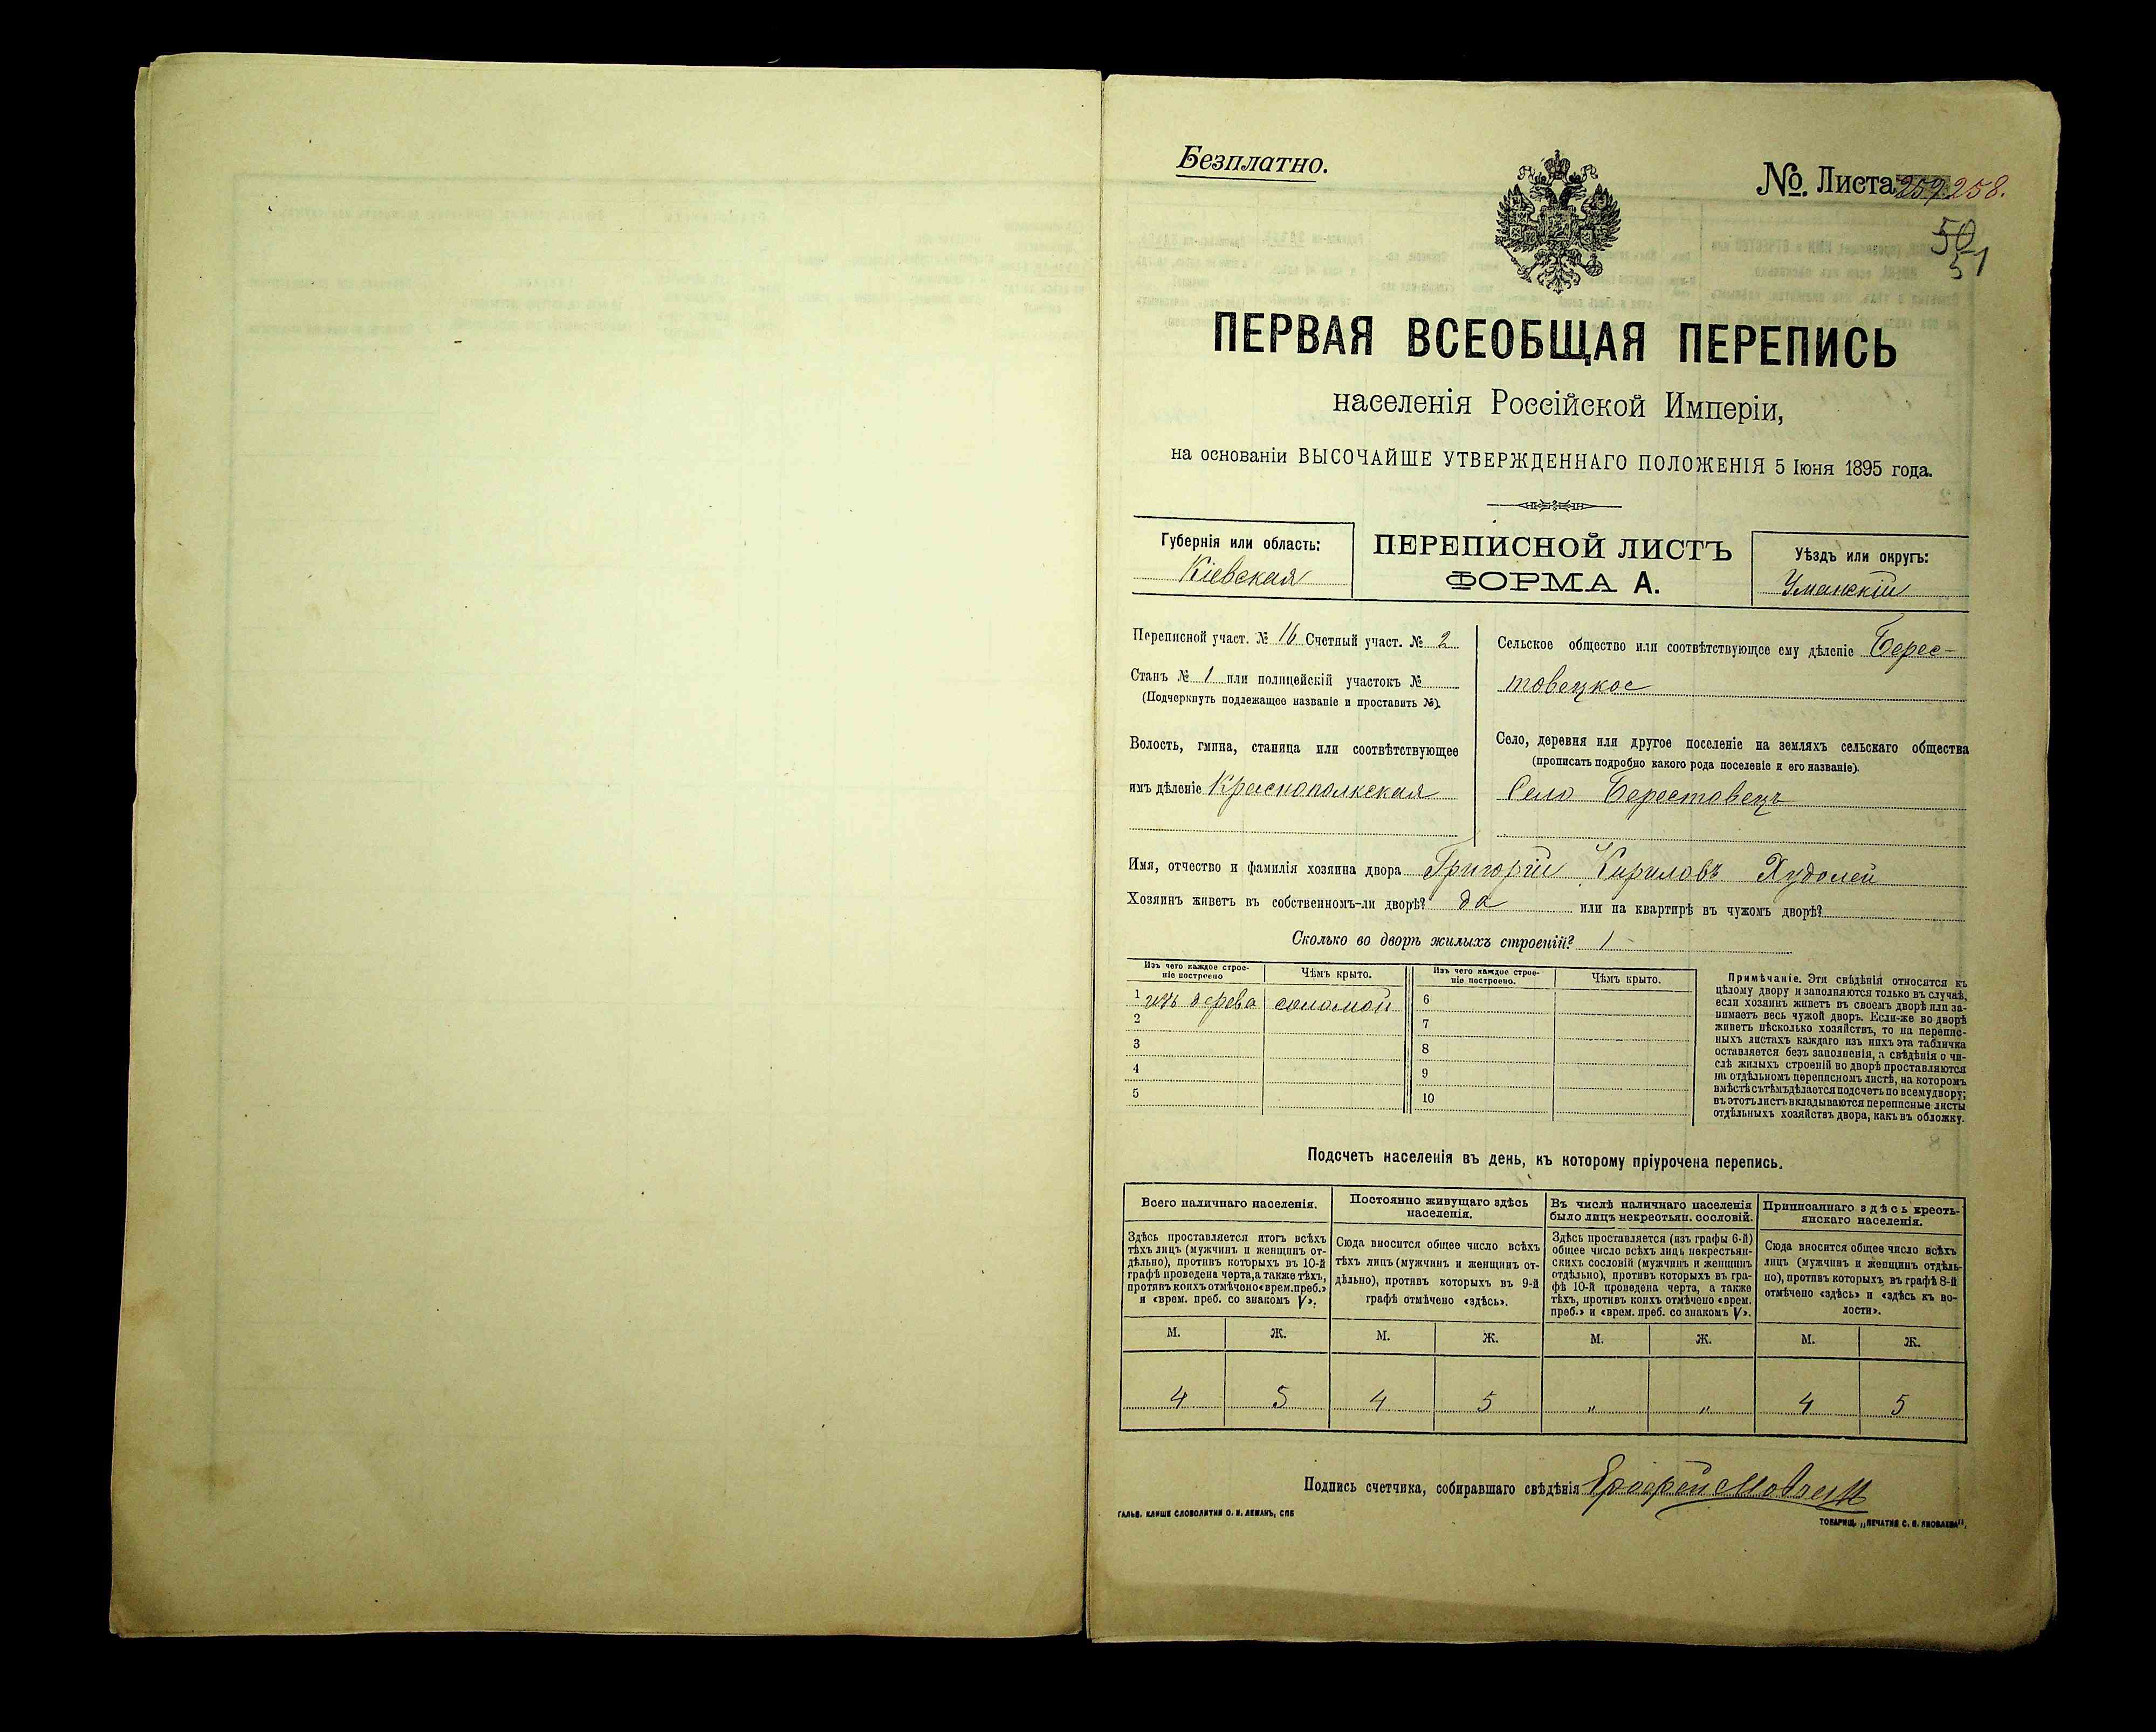 Безплатно.
№ Листа 258.
50
51
ПЕРВАЯ ВСЕОБЩАЯ ПЕРЕПИСЬ
населенія Россійской Имперіи,
на основаніи ВЫСОЧАЙШЕ УТВЕРЖДЕННАГО ПОЛОЖЕНІЯ 5 Іюня 1895 года.
Губернія или область:
Кіевская
ПЕРЕПИСНОЙ ЛИСТЪ
ФОРМА А.
Уѣздъ или округъ:
Уманскій
Переписной участ. № 16 Счетный участ. № 2
Станъ № 1 или полицейскій участокъ №
(Подчеркнуть подлежащее названіе и проставить №).
Волость, гмина, станица или соотвѣтствующее
имъ дѣленіе Краснополкская
Сельское общество или соотвѣтствующее ему дѣленіе Берес-
товецкое
Село, деревня или другое поселеніе на земляхъ сельскаго общества
(прописать подробно какого рода поселеніе и его названіе).
Село Берестовецъ
Имя, отчество и фамилія хозяина двора Григорій Кириловъ Худолей
Хозяинъ живетъ въ собственномъ-ли дворѣ? да или на квартирѣ въ чужомъ дворѣ?
Сколько во дворѣ жилыхъ строеній? 1
Изъ чего каждое строе-
ніе построено
Чѣмъ крыто.
Изъ чего каждое строе-
ніе построено.
Чѣмъ крыто.
1 изъ дерева соломой 6
2 7
3 8
4 9
5 10
Примѣчаніе. Эти свѣдѣнія относятся къ
цѣлому двору и заполняются только въ случаѣ,
если хозяинъ живетъ въ своемъ дворѣ или за-
нимаетъ весь чужой дворъ. Если-же во дворѣ
живетъ нѣсколько хозяйствъ, то на перепис-
ныхъ листахъ каждаго изъ нихъ эта табличка
оставляется безъ заполненія, а свѣдѣнія о чи-
слѣ жилыхъ строеній во дворѣ проставляются
на отдѣльномъ переписномъ листѣ, на которомъ
вмѣстѣ съ тѣмъ дѣлается подсчетъ по всему двору;
въ этотъ листъ вкладываются переписные листы
отдѣльныхъ хозяйствъ двора, какъ въ обложку.
Подсчетъ населенія въ день, къ которому пріурочена перепись.
Всего наличнаго населенія.
Здѣсь проставляется итогъ всѣхъ
тѣхъ лицъ (мужчинъ и женщинъ от-
дѣльно), противъ которыхъ въ 10-й
графѣ проведена черта, а также тѣхъ,
противъ коихъ отмѣчено «врем. преб.»
и «врем. преб. со знакомъ V».
Постоянно живущаго здѣсь
населенія.
Сюда вносится общее число всѣхъ
тѣхъ лицъ (мужчинъ и женщинъ от-
дѣльно), противъ которыхъ въ 9-й
графѣ отмѣчено «здѣсь».
Въ числѣ наличнаго населенія
было лицъ некрестьян. сословій.
Здѣсь проставляется (изъ графы 6-й)
общее число всѣхъ лицъ некрестьян-
скихъ сословій (мужчинъ и женщинъ
отдѣльно), противъ которыхъ въ гра-
фѣ 10-й проведена черта, а также
тѣхъ, противъ коихъ отмѣчено «врем.
преб.» и «врем. преб. со знакомъ V».
Приписаннаго здѣсь кресть-
янскаго населенія.
Сюда вносится общее число всѣхъ
лицъ (мужчинъ и женщинъ отдѣль-
но), противъ которыхъ въ графѣ 8-й
отмѣчено «здѣсь» и «здѣсь къ во-
лости».
М. Ж. М. Ж. М. Ж. М. Ж.
4 5 4 5 " " 4 5
Подпись счетчика, собиравшаго свѣдѣнія
ГАЛЬВ. КЛИШЕ СЛОВОЛИТНИ О. И. ЛЕМАНЪ, СПБ
ТОВАРИЩ. „ПЕЧАТНЯ С. П. ЯКОВЛЕВА“.